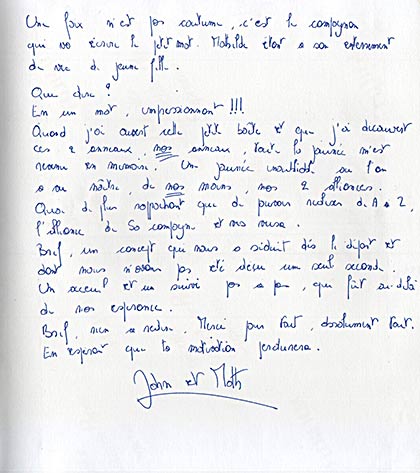 Une fois n'est pas coutume, c'est le compagnon
qui va écrire le petit mot. Mathilde étant à son enterrement
de vie de jeune fille.
Que dire ?
En un mot, impressionnant !!!
Quand j'ai ouvert cette petite boîte et que j'ai découvert
ces 2 anneaux, nos anneaux, toute la journée m'est
revenue en mémoire. Une journée où l'on
a vu naître, de nos mains, nos 2 alliances.
Quoi de plus que de pouvoir réaliser de A à Z,
l'alliance de sa compagne et vice versa.
Bref, un concept qui nous a séduit dès le départ et
dont nous n'avons pas été déçu une seule seconde.
Un accueil et un suivi pas à pas, qui fût au-delà
de nos espérance.
Bref, rien à redire, Merci pour tout, absolument tout.
En espérant que ta motivation perdurera.
John et Math